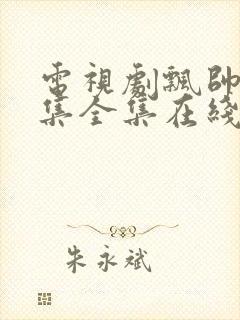 電視劇飄帥
集全集在綫
朱永斌